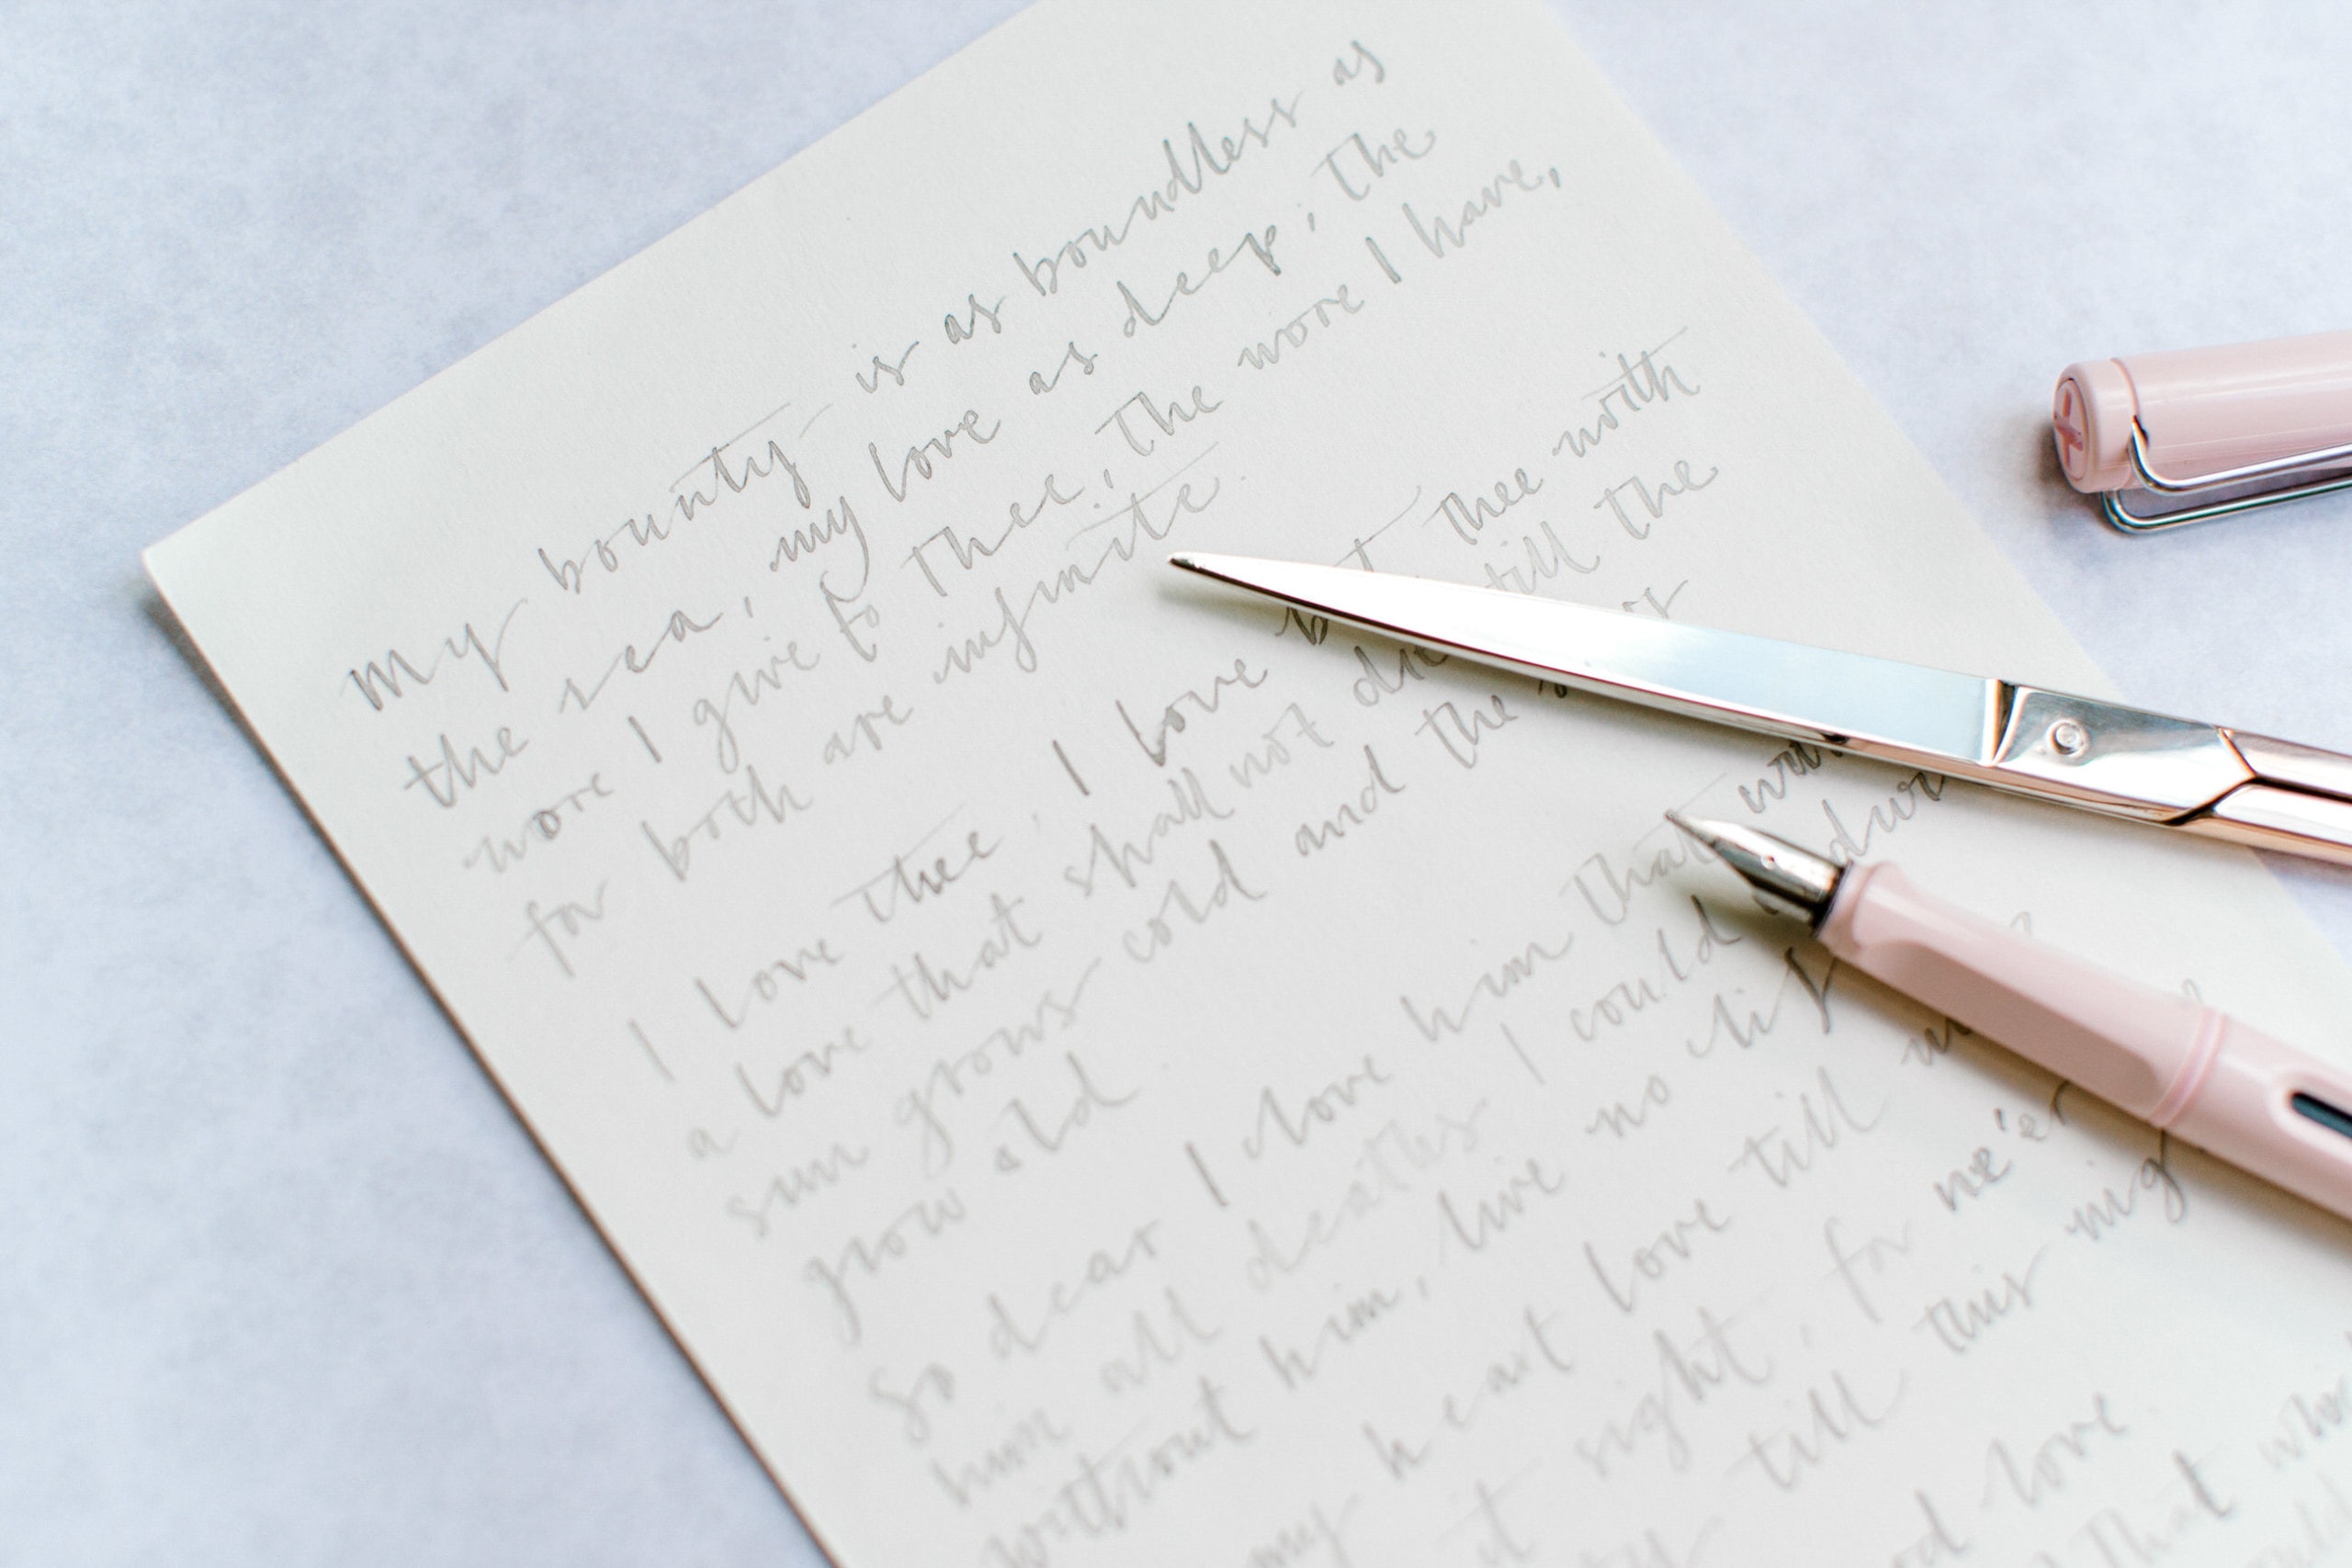 My bounty is as boundless as
the sea, my love as deep; the
more I give to thee, the more I have,
for both are infinite.
I love thee, I love but thee with
a love that shall not die till the
sun grows cold and the
grow old.
So dear I love him that with
him all deaths I could
without him, live no life
my heart love till
sight, for ne'er
till this nig
love.
that